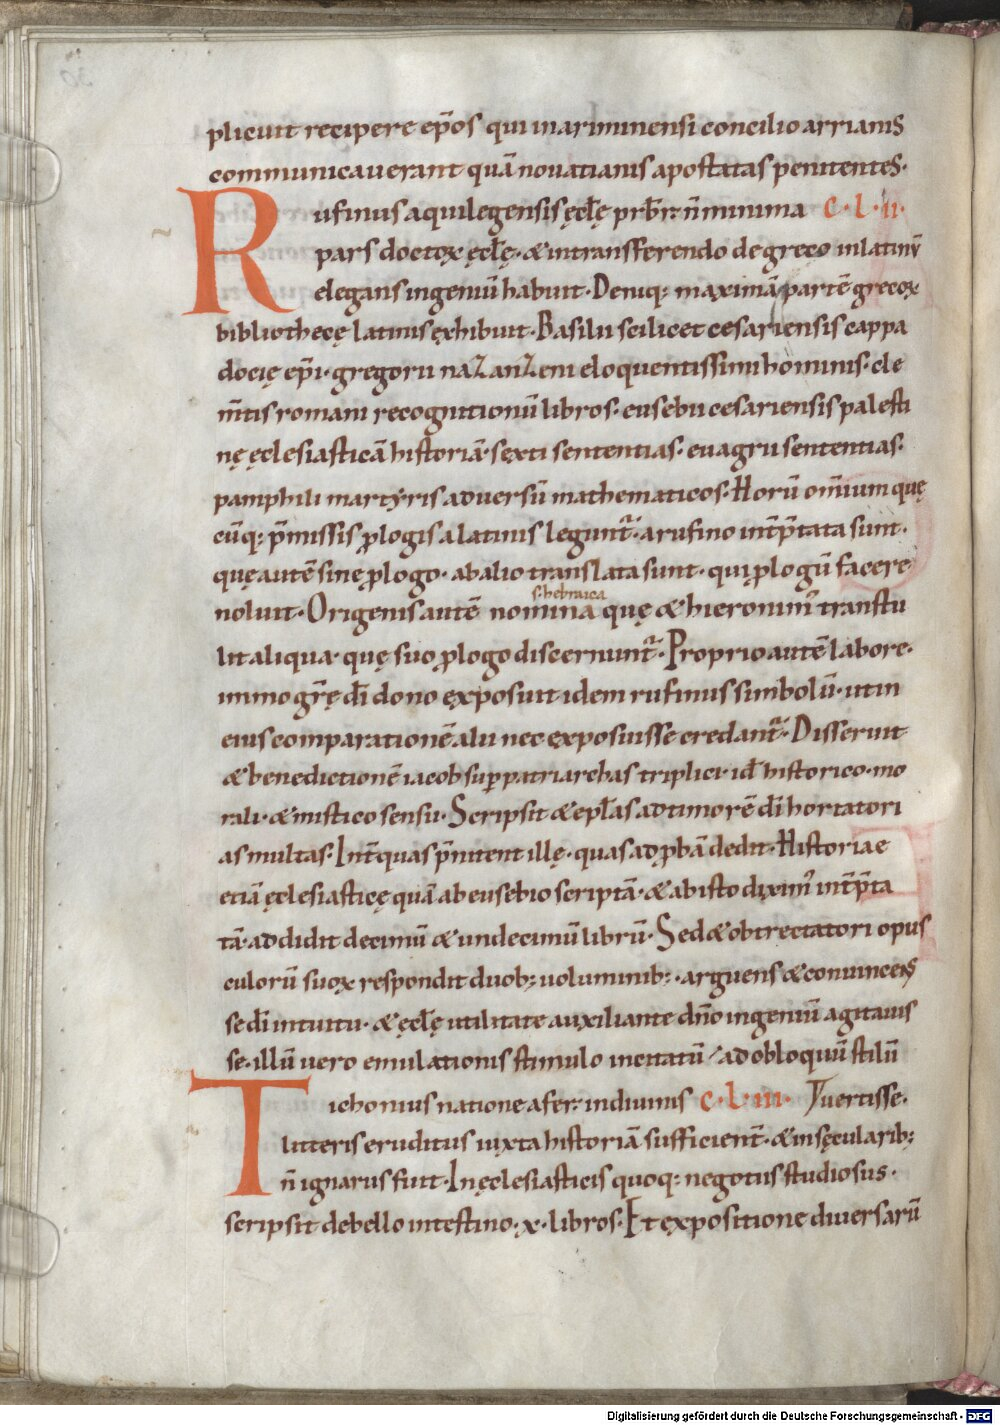 plicuit recipere ep̄os qui in ariminensi concilio arrianis
communicauerant quā nouatianis apostatas penitentes·
Rufinus aquilegensis ęcl̄ę prb̄r n̄ minima c·l·ii·
pars doctoꝝ ęcl̄ę· & in transfferendo de gręco in latinū
elegans ingeniū habuit· Deniq; maximā partē grecoꝝ
bibliothecę latinis exhibuit· Basilii scilicet cesariensis cappa
docię ep̄i· gregorii nazanzeni eloquentissimi hominis· cle
m̄tis romani recognitionū libros· eusebii cesariensis palesti
nę ęclesiasticā historiā· sexti sententias· euagrii sententias·
pamphili martyris aduersū mathematicos· Horū om̄ium quę
cūq; p̄missis ꝓlogis a latinis legunt᷑· a rufino int̄p̄tata sunt·
quę autē sine ꝓlogo· ab alio translata sunt· qui ꝓlogū facere
noluit· Origenis autē nomina quę & hieronim᾿ transtu
s· hebraica
lit aliqua· quę suo ꝓlogo discernunt᷑· Proprio autē labore·
immo gr̄ę dī dono exposuit idem rufinus simbolū· ut in
eius comparationē alii nec exposuisse credant᷑· Disseruit
& benedictionē iacob suꝑ patriarchas triplici· id̄ historico· mo
rali· & mistico sensu· Scripsit & epl̄as ad timorē dī hortatori
as multas· Int̄ quas p̄nitent illę· quas ad ꝓbā dedit· Historiae
etiā ęclesiasticę quā ab eusebio scriptā· & ab isto dixim᾿ int̄p̄ta
tā· addidit decimū & undecimū librū· Sed & obtrectatori opus
culorū suoꝝ respondit duob; uoluminib;· arguens & conuincens
se dī intuitu· & ęcl̄ę utilitate auxiliante dn̄o ingeniū agitauis
se· illū uero emulationis stimulo incitatū / ad obloquiū stilū
Tichonius natione afer· in diuinis c·l·iii· uertisse·
litteris eruditus iuxta historiā sufficient᷑· & in sęcularib;
n̄ ignarus fuit· In ęclesiasticis quoq; negotiis studiosus·
scripsit de bello intestino· x· libros· Et expositione diuersarū
Digitalisierung gefördert durch die Deutsche Forschungsgemeinschaft - DFG